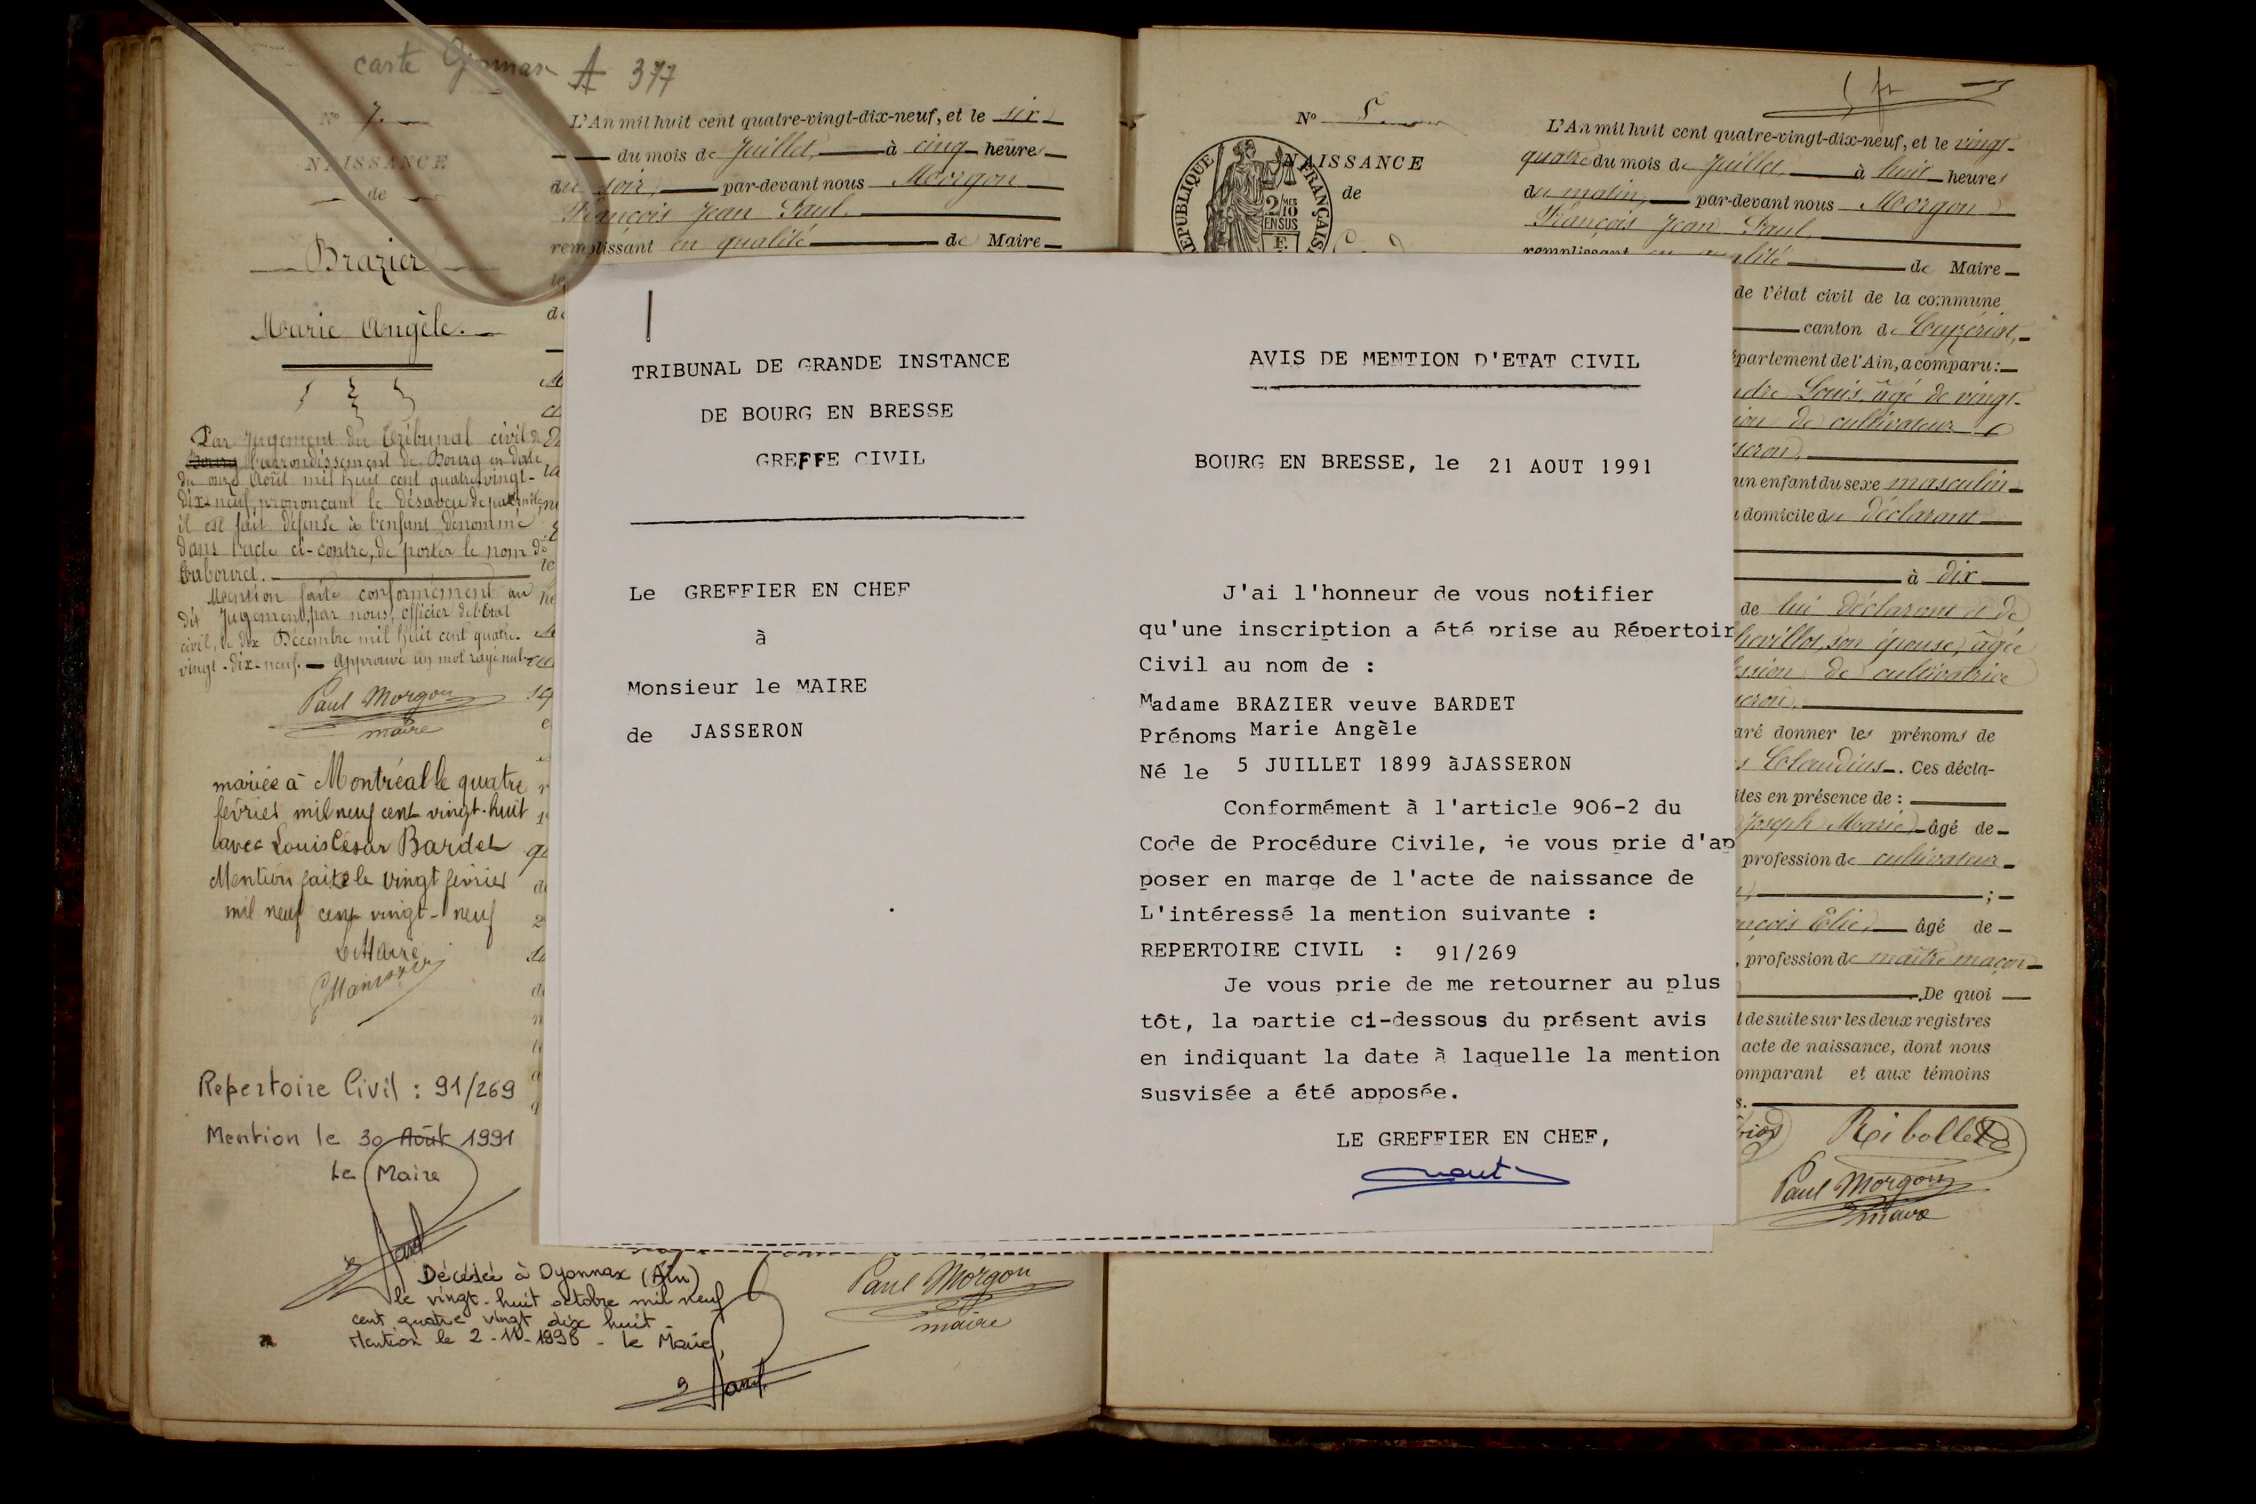 carte
A 377
N° 7.
NAISSANCE
de
Brazier
Marie Angèle.
Par jugement du Tribunal civil de
Bourg l'arrondissement de Bourg en date
du onze Août mil huit cent quatre-vingt-
dix-neuf, prononçant le désaveu de paternité
il est fait défense à l'enfant dénommé
dans l'acte ci-contre, de porter le nom de
Mention faite conformément au
dit jugement, par nous, officier de l'état
civil, le dix Décembre mil huit cent quatre-
vingt-dix-neuf. — Approuvé un mot rayé nul
Paul Morgon
maire
mariée à Montréal le quatre
février mil neuf cent vingt-huit
avec Louis César Bardet
Mention faite le vingt février
mil neuf cent vingt-neuf
Le Maire
Repertoire Civil : 91/269
Mention le 30 Août 1991
Le Maire
Décédée à Oyonnax (Ain)
le vingt-huit octobre mil neuf
cent quatre vingt dix huit -
Mention le 2-11-1998 - Le Maire,
L'An mil huit cent quatre-vingt-dix-neuf, et le six
du mois de Juillet, à cinq heures
du soir, par-devant nous Morgon
François Jean Paul
remplissant en qualité de Maire
Paul Morgon
maire
TRIBUNAL DE GRANDE INSTANCE
DE BOURG EN BRESSE
GREFFE CIVIL
Le GREFFIER EN CHEF
à
Monsieur le MAIRE
de JASSERON
AVIS DE MENTION D'ETAT CIVIL
BOURG EN BRESSE, le 21 AOUT 1991
J'ai l'honneur de vous notifier
qu'une inscription a été prise au Répertoir
Civil au nom de :
Madame BRAZIER veuve BARDET
Prénoms Marie Angèle
Né le 5 JUILLET 1899 àJASSERON
Conformément à l'article 906-2 du
Code de Procédure Civile, je vous prie d'ap
poser en marge de l'acte de naissance de
L'intéressé la mention suivante :
REPERTOIRE CIVIL : 91/269
Je vous prie de me retourner au plus
tôt, la partie ci-dessous du présent avis
en indiquant la date à laquelle la mention
susvisée a été apposée.
LE GREFFIER EN CHEF,
N°
NAISSANCE
de
RÉPUBLIQUE FRANÇAISE
2/10 MES
EN SUS
L'An mil huit cent quatre-vingt-dix-neuf, et le vingt-
quatre du mois de Juillet, à huit heures
du matin, par-devant nous Morgon
François Jean Paul
remplissant en qualité de Maire
de l'état civil de la commune
canton de Ceyzériat,
département de l'Ain, a comparu :
Louis, âgé de vingt-
de cultivateur
un enfant du sexe masculin
domicile du déclarant
à dix
de lui déclarant et de
son épouse, âgée
de cultivatrice
donner les prénoms de
Claudius. Ces décla-
en présence de :
Joseph Marie âgé de
profession de cultivateur
; 
Elie, âgé de
, profession de maître maçon
De quoi
de suite sur les deux registres
acte de naissance, dont nous
comparant et aux témoins
Ribollet
Paul Morgon
maire